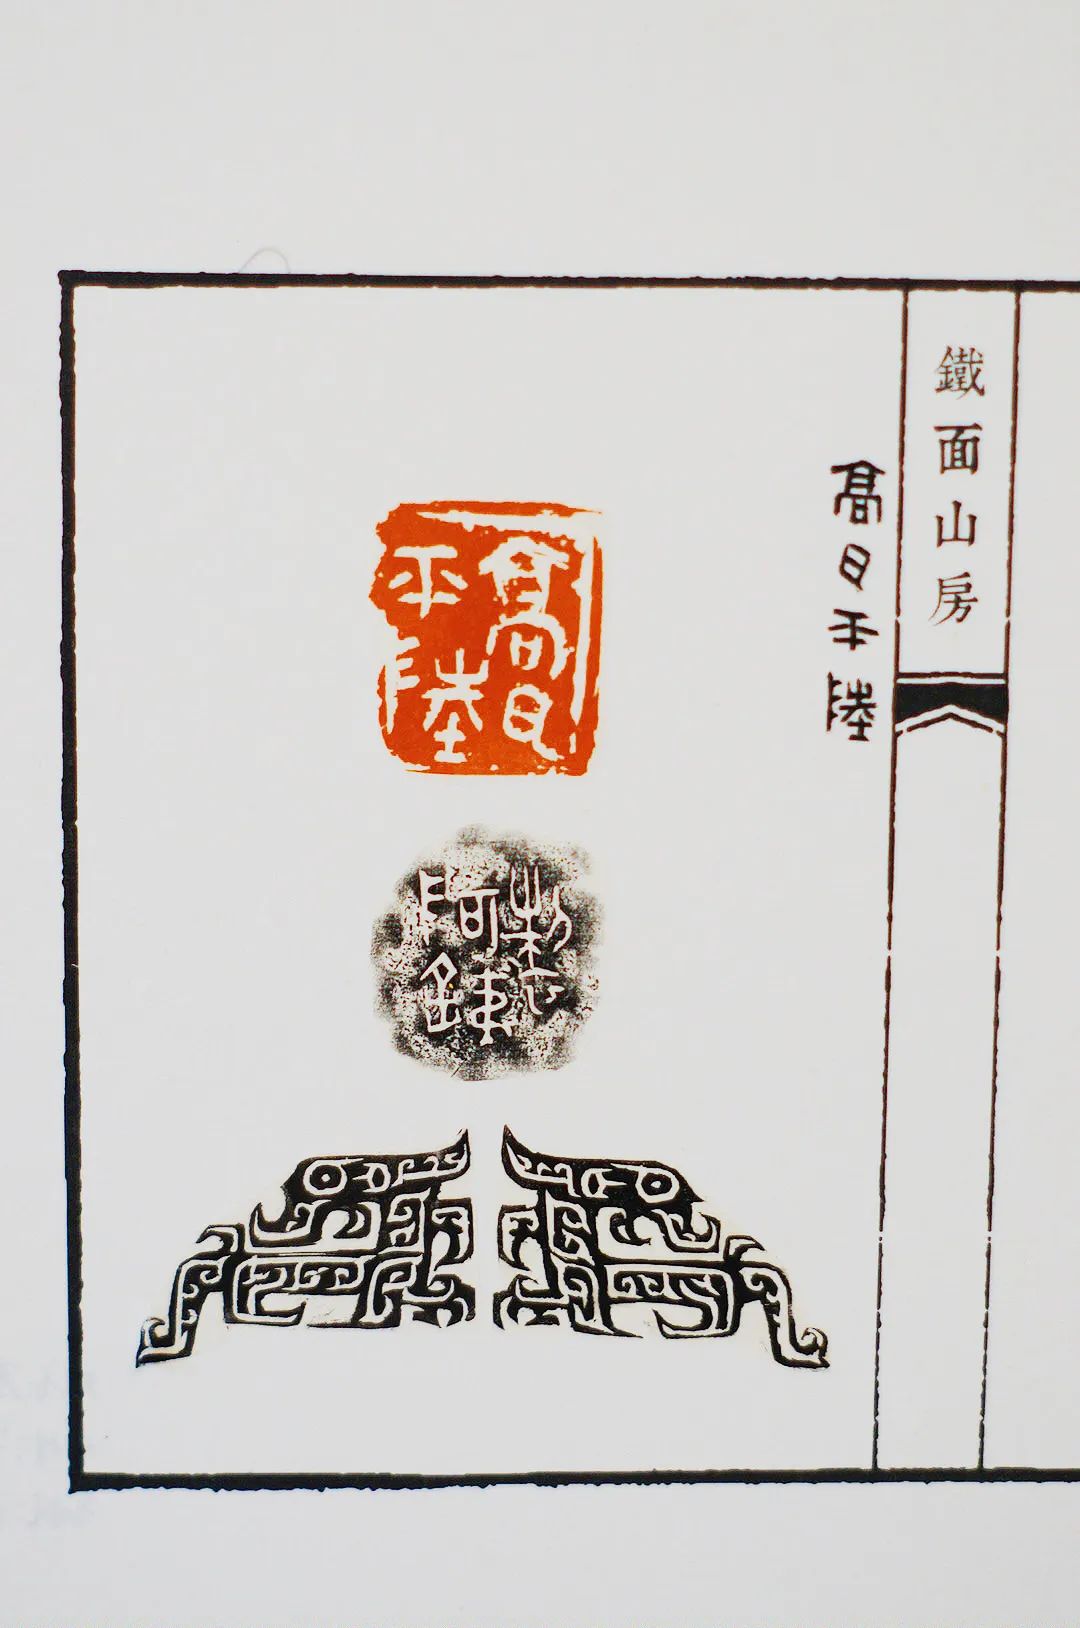 鐵面山房
高日平陸
高日
平陸